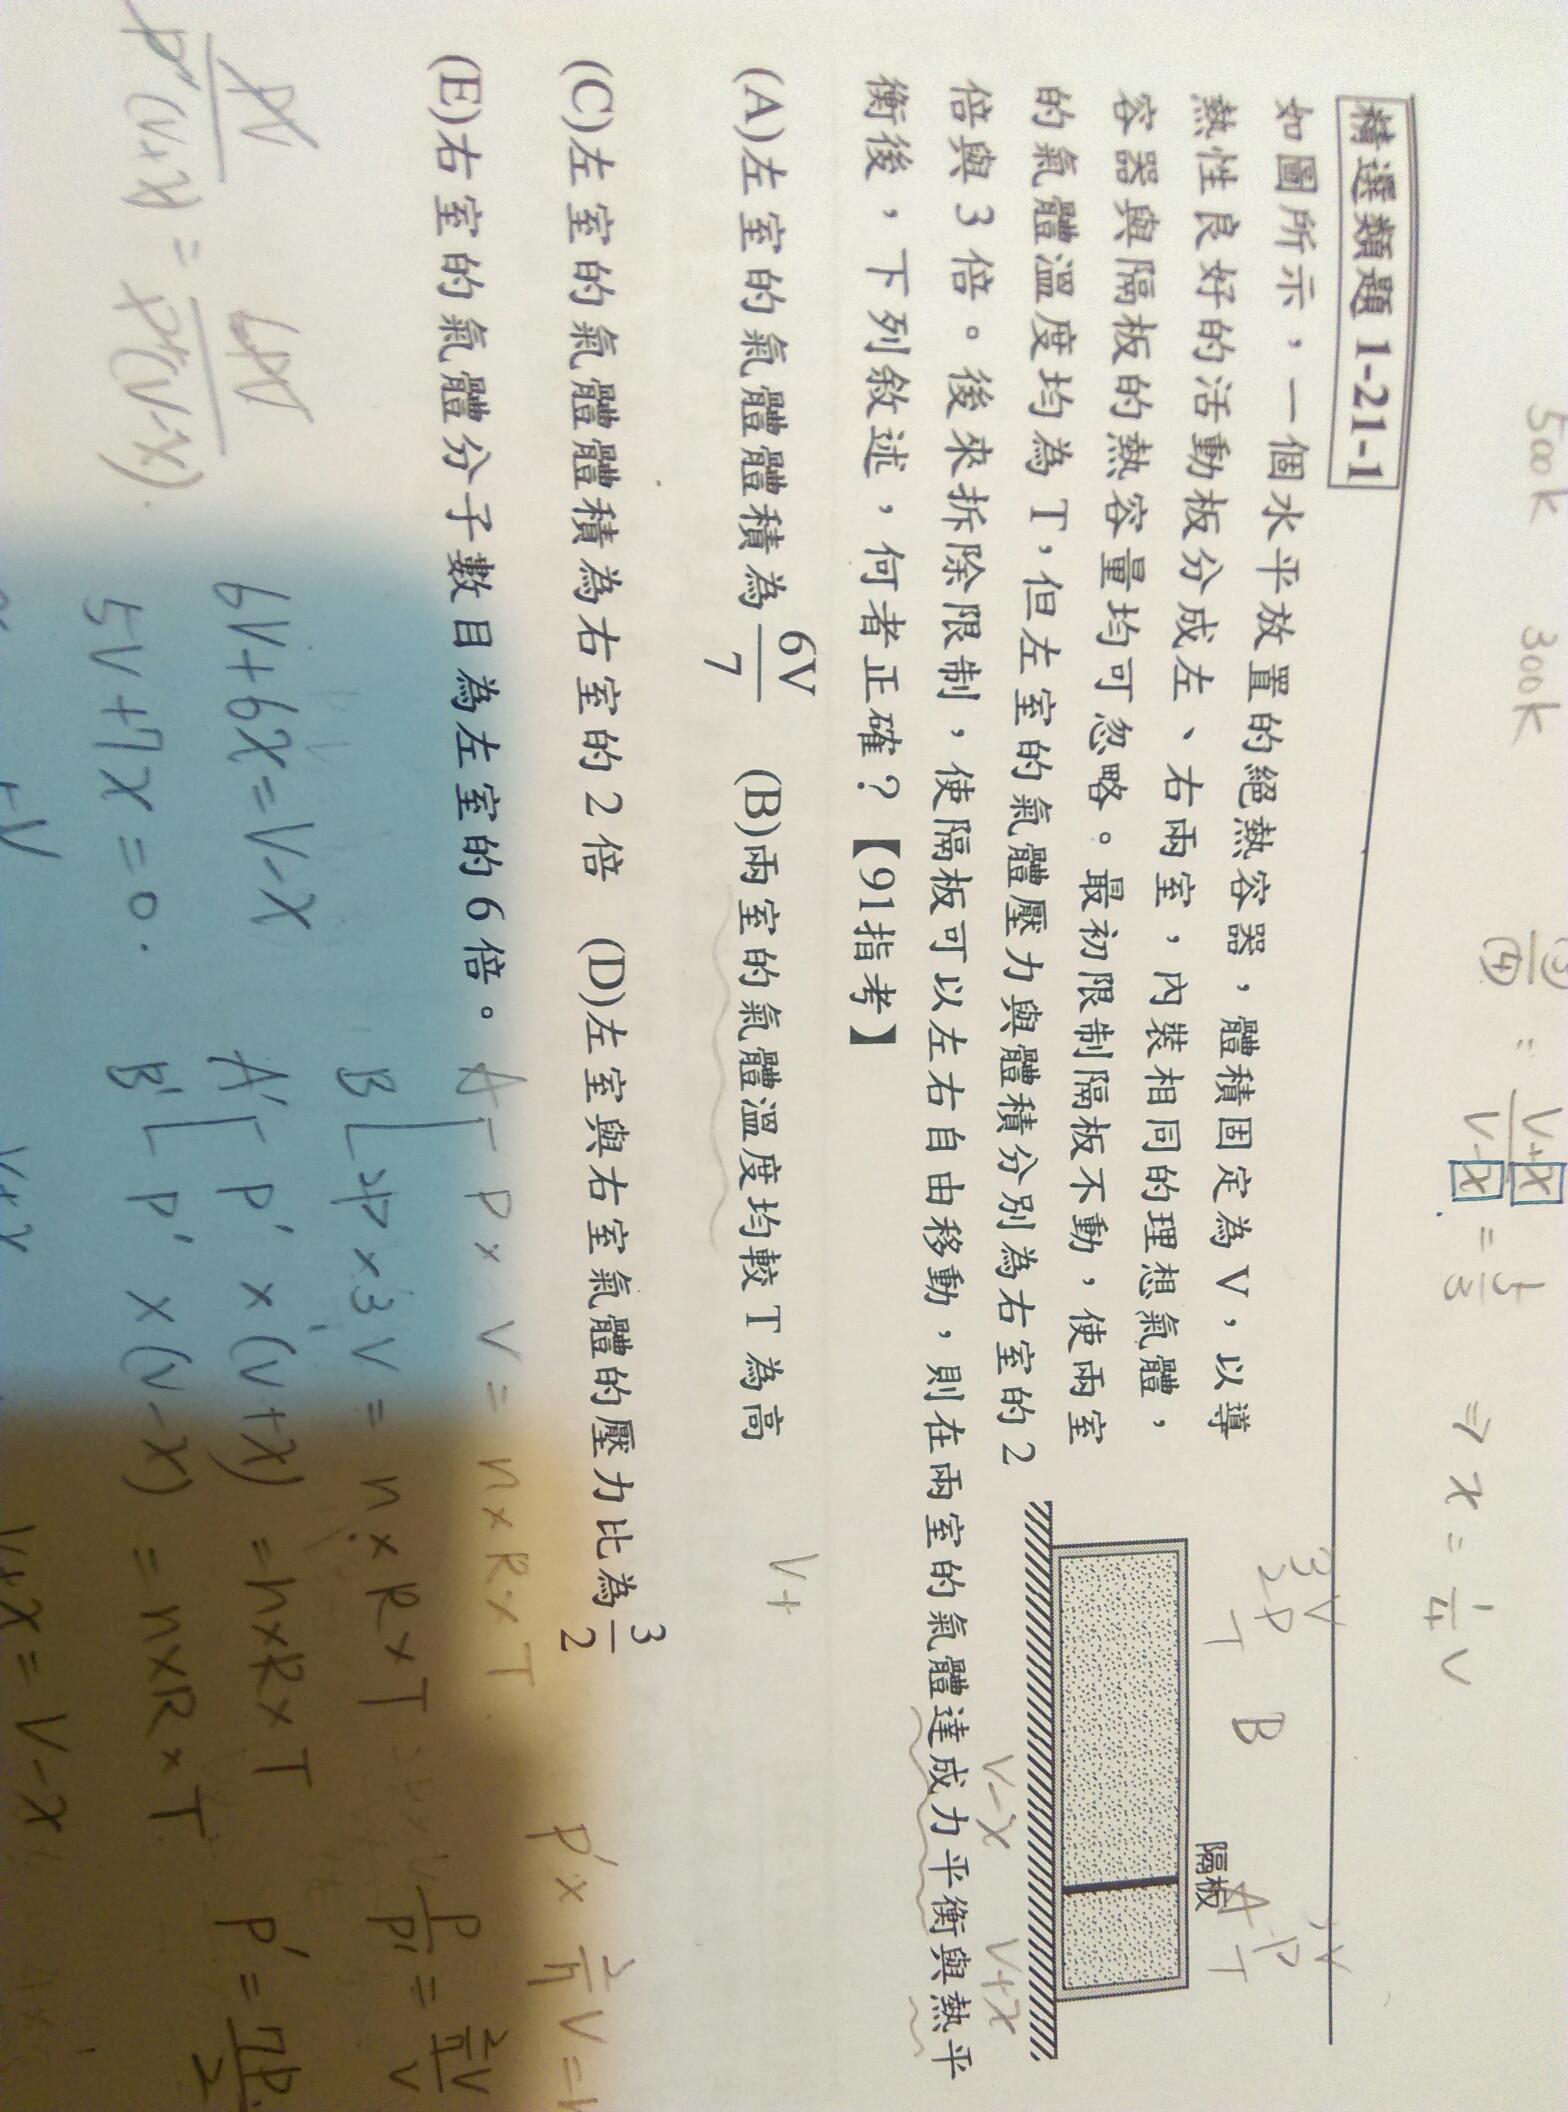 500k 300k
精選類題 1-21-1
如圖所示，一個水平放置的絕熱容器，體積固定為V，以導
熱性良好的活動板分成左、右兩室，內裝相同的理想氣體，
容器與隔板的熱容量均可忽略。最初限制隔板不動，使兩室
的氣體溫度均為T，但左室的氣體壓力與體積分別為右室的2
倍與3倍。後來拆除限制，使隔板可以左右自由移動，則在兩室的氣體達成力平衡與熱平
衡後，下列敘述，何者正確？【91指考】
隔板
3V
2P
T B
A P
T
V-x V+x
(A)左室的氣體體積為6V/7 (B)兩室的氣體溫度均較T為高
V+
(C)左室的氣體體積為右室的2倍 (D)左室與右室氣體的壓力比為3/2
(E)右室的氣體分子數目為左室的6倍。
A P×V=n×R×T
B 2P×3V=n×R×T
A' P'×(V+x)=n×R×T
B' P'×(V-x)=n×R×T
6V+6x=V-x
5V+7x=0.
V+x=V-x